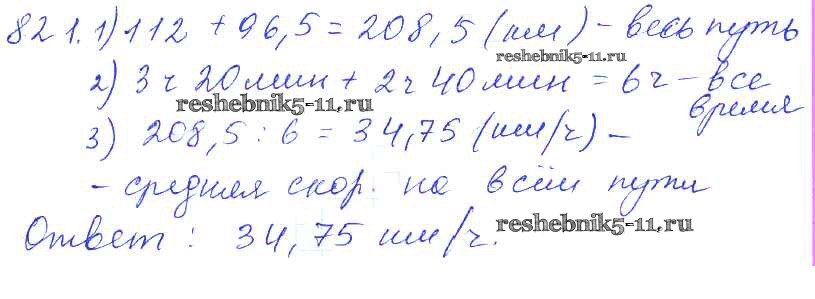 821. 1) 112 + 96,5 = 208,5 (км) - весь путь
reshebnik5-11.ru
2) 3 ч 20 мин + 2 ч 40 мин = 6 ч - все
время
reshebnik5-11.ru
3) 208,5 : 6 = 34,75 (км/ч) -
- средняя скор. на всём пути
Ответ: 34,75 км/ч.
reshebnik5-11.ru